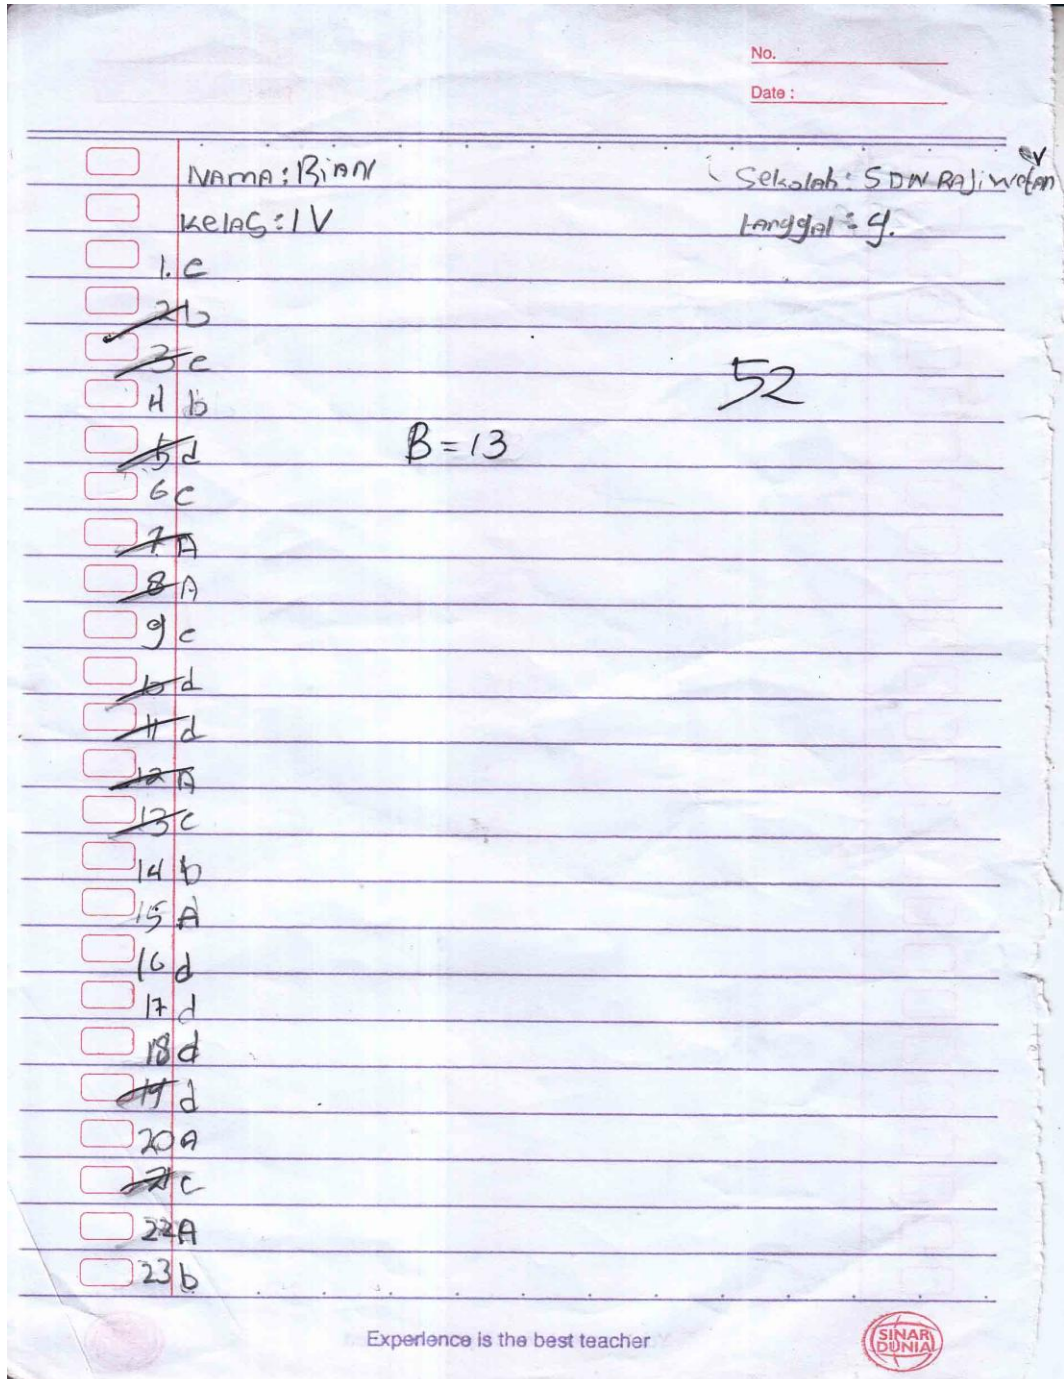 No.
Date :
NAMA : BiAN Sekolah : SDN RAJiwetan
kelAS : IV tanggal : 9.
1. c
2 b
3 c
4 b 52
5 d B = 13
6 c
7 A
8 A
9 c
10 d
11 d
12 A
13 c
14 b
15 A
16 d
17 d
18 d
19 d
20 A
21 c
22 A
23 b
Experience is the best teacher
SINAR DUNIA